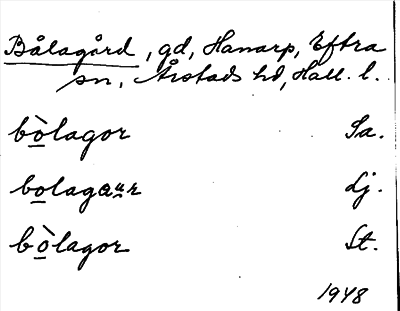 Bålagård, gd, Hanarp, Eftra
sn, Årstads hd, Hall. l.
bò̲lagor Sa.
bo̲laga̲u̲r Lj.
bò̲lagor St.
1948